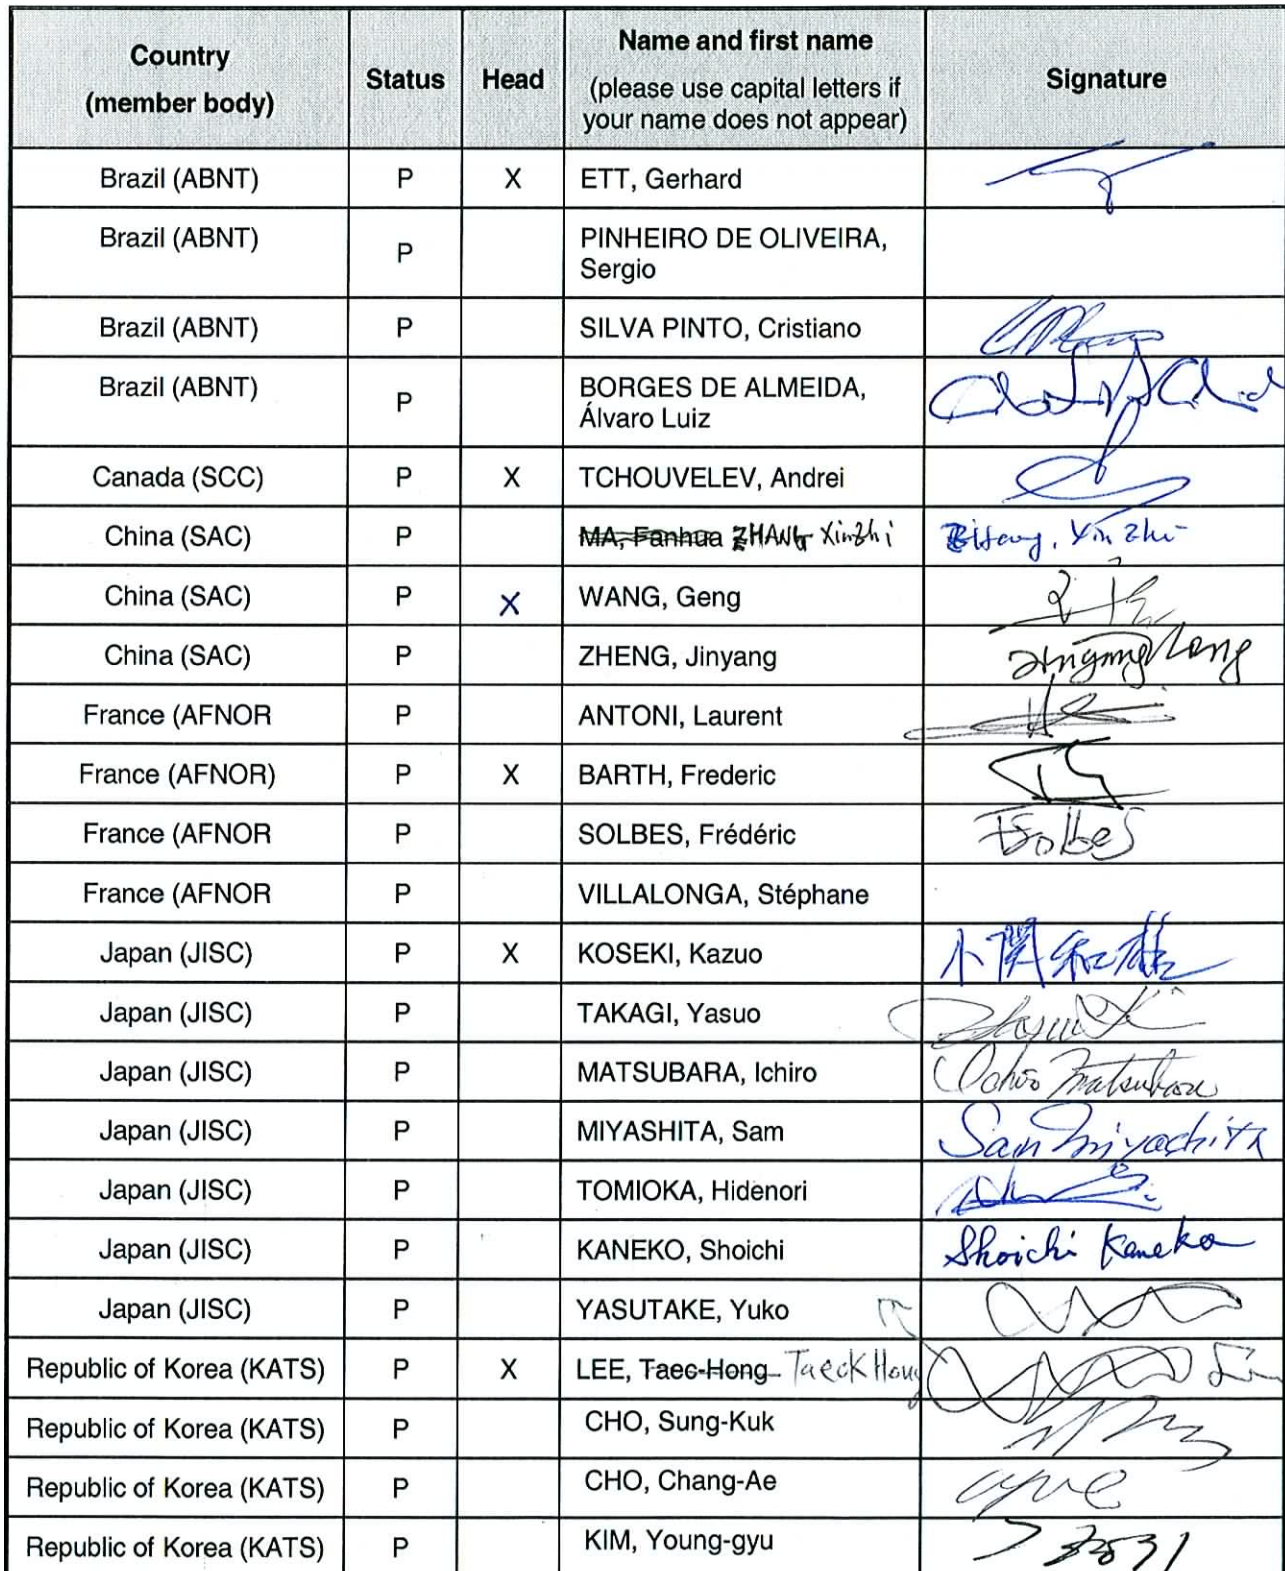 Country (member body) Status Head Name and first name (please use capital letters if your name does not appear) Signature
Brazil (ABNT) P X ETT, Gerhard
Brazil (ABNT) P PINHEIRO DE OLIVEIRA, Sergio
Brazil (ABNT) P SILVA PINTO, Cristiano
Brazil (ABNT) P BORGES DE ALMEIDA, Álvaro Luiz
Canada (SCC) P X TCHOUVELEV, Andrei
China (SAC) P MA, Fanhua ZHANG Xinzhi Zhang, Xin Zhi
China (SAC) P X WANG, Geng
China (SAC) P ZHENG, Jinyang
France (AFNOR P ANTONI, Laurent
France (AFNOR) P X BARTH, Frederic
France (AFNOR P SOLBES, Frédéric FSolbes
France (AFNOR P VILLALONGA, Stéphane
Japan (JISC) P X KOSEKI, Kazuo 小関和雄
Japan (JISC) P TAKAGI, Yasuo
Japan (JISC) P MATSUBARA, Ichiro Matsubara
Japan (JISC) P MIYASHITA, Sam Sam Miyashita
Japan (JISC) P TOMIOKA, Hidenori
Japan (JISC) P KANEKO, Shoichi Shoichi Kaneko
Japan (JISC) P YASUTAKE, Yuko
Republic of Korea (KATS) P X LEE, Taec-Hong TaeckHong
Republic of Korea (KATS) P CHO, Sung-Kuk
Republic of Korea (KATS) P CHO, Chang-Ae
Republic of Korea (KATS) P KIM, Young-gyu